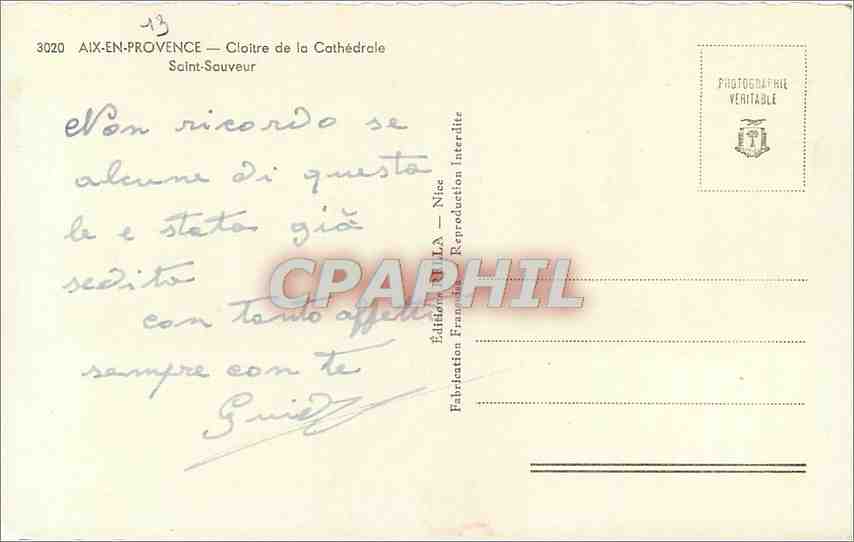 13
3020 AIX-EN-PROVENCE — Cloître de la Cathédrale
Saint-Sauveur
Non ricordo se
alcune di questa
le e stata già
sedita
con tanto affetto
sempre con te
Guido
CPAPHIL
Éditions RELLA — Nice
Fabrication Française Reproduction Interdite
PHOTOGRAPHIE
VÉRITABLE